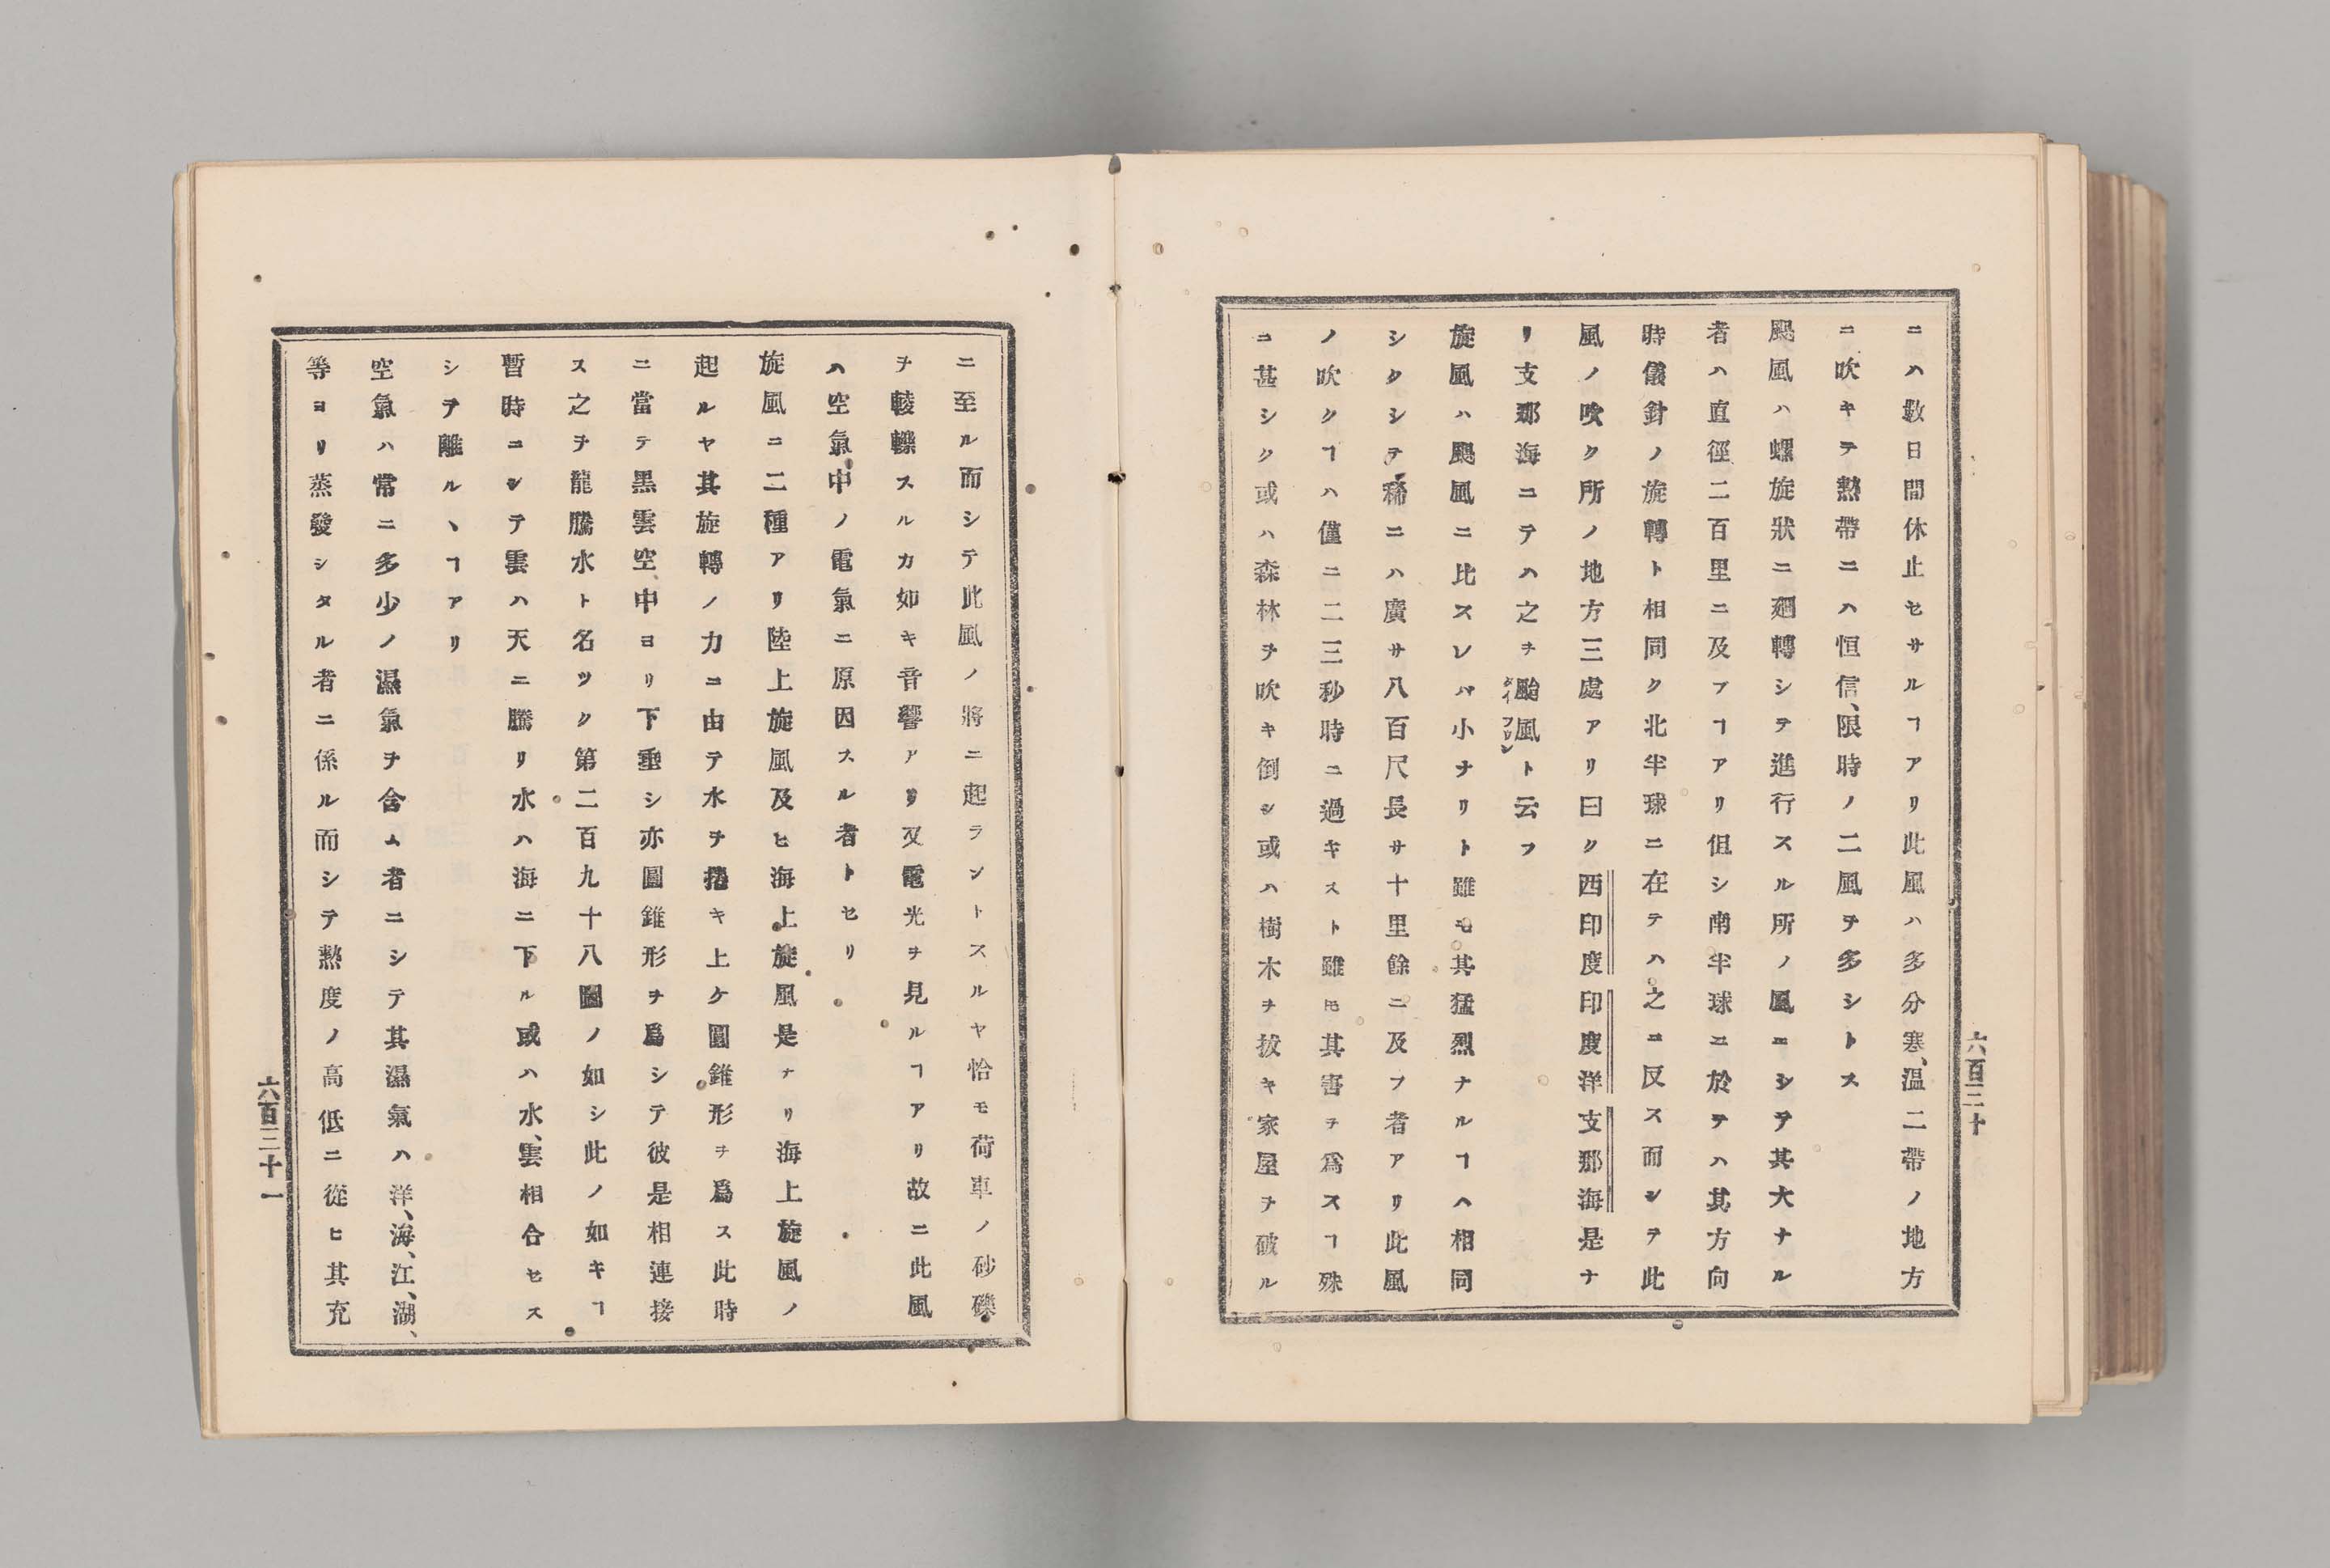 ニハ數日間休止セサルヿアリ此風ハ多分寒、温二帶ノ地方
ニ吹キテ熱帶ニハ恒信、限時ノ二風ヲ多シトス
颶風ハ螺旋狀ニ廻轉シテ進行スル所ノ風ニシテ其大ナル
者ハ直徑二百里ニ及フヿアリ但シ南半球ニ於テハ其方向
時儀針ノ旋轉ト相同ク北半球ニ在テハ之ニ反ス而シテ此
風ノ吹ク所ノ地方三處アリ曰ク西印度印度洋支那海是ナ
リ支那海ニテハ之ヲ颱風ト云フ
タイフウン
旋風ハ颶風ニ比スレハ小ナリト雖モ其猛烈ナルヿハ相同
シクシテ稀ニハ廣サ八百尺長サ十里餘ニ及フ者アリ此風
ノ吹クヿハ僅ニ二三秒時ニ過キスト雖モ其害ヲ爲スヿ殊
ニ甚シク或ハ森林ヲ吹キ倒シ或ハ樹木ヲ拔キ家屋ヲ破ル
六百三十
ニ至ル而シテ此風ノ將ニ起ラントスルヤ恰モ荷車ノ砂礫
ヲ輘轢スルカ如キ音響アリ又電光ヲ見ルヿアリ故ニ此風
ハ空氣中ノ電氣ニ原因スル者トセリ
旋風ニ二種アリ陸上旋風及ヒ海上旋風是ナリ海上旋風ノ
起ルヤ其旋轉ノ力ニ由テ水ヲ捲キ上ケ圓錐形ヲ爲ス此時
ニ當テ黑雲空中ヨリ下垂シ亦圓錐形ヲ爲シテ彼是相連接
ス之ヲ龍騰水ト名ツク第二百九十八圖ノ如シ此ノ如キヿ
暫時ニシテ雲ハ天ニ騰リ水ハ海ニ下ル或ハ水、雲相合セス
シテ離ルヽヿアリ
空氣ハ常ニ多少ノ濕氣ヲ含ム者ニシテ其濕氣ハ洋、海、江、湖、
等ヨリ蒸發シタル者ニ係ル而シテ熱度ノ高低ニ從ヒ其充
六百三十一